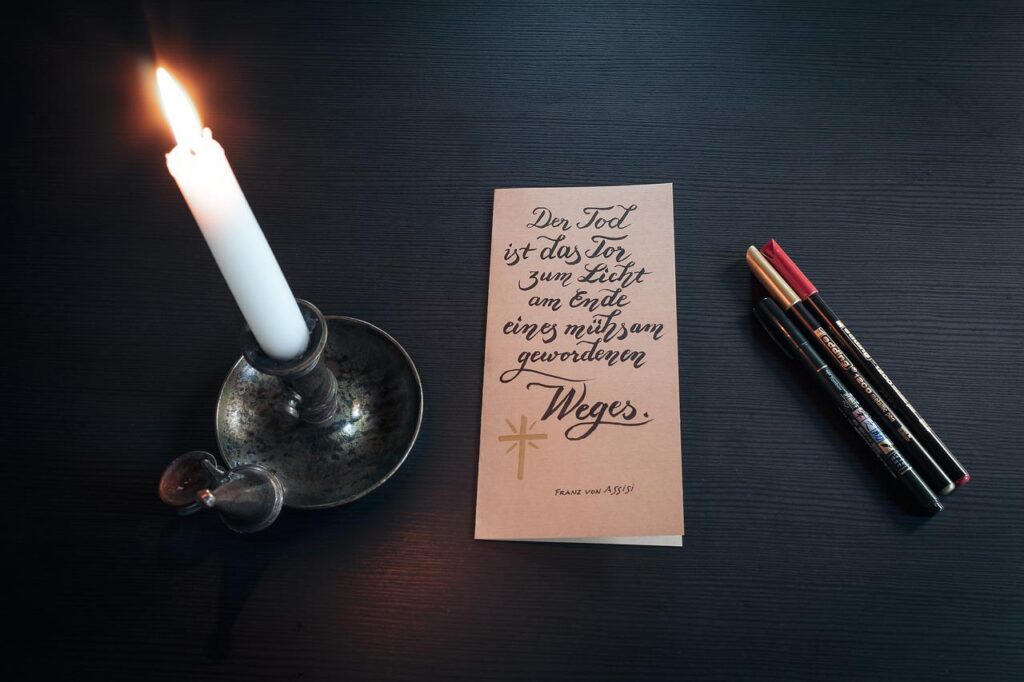 Der Tod
ist das Tor
zum Licht
am Ende
eines mühsam
gewordenen
Weges.
FRANZ VON ASSISI
edding